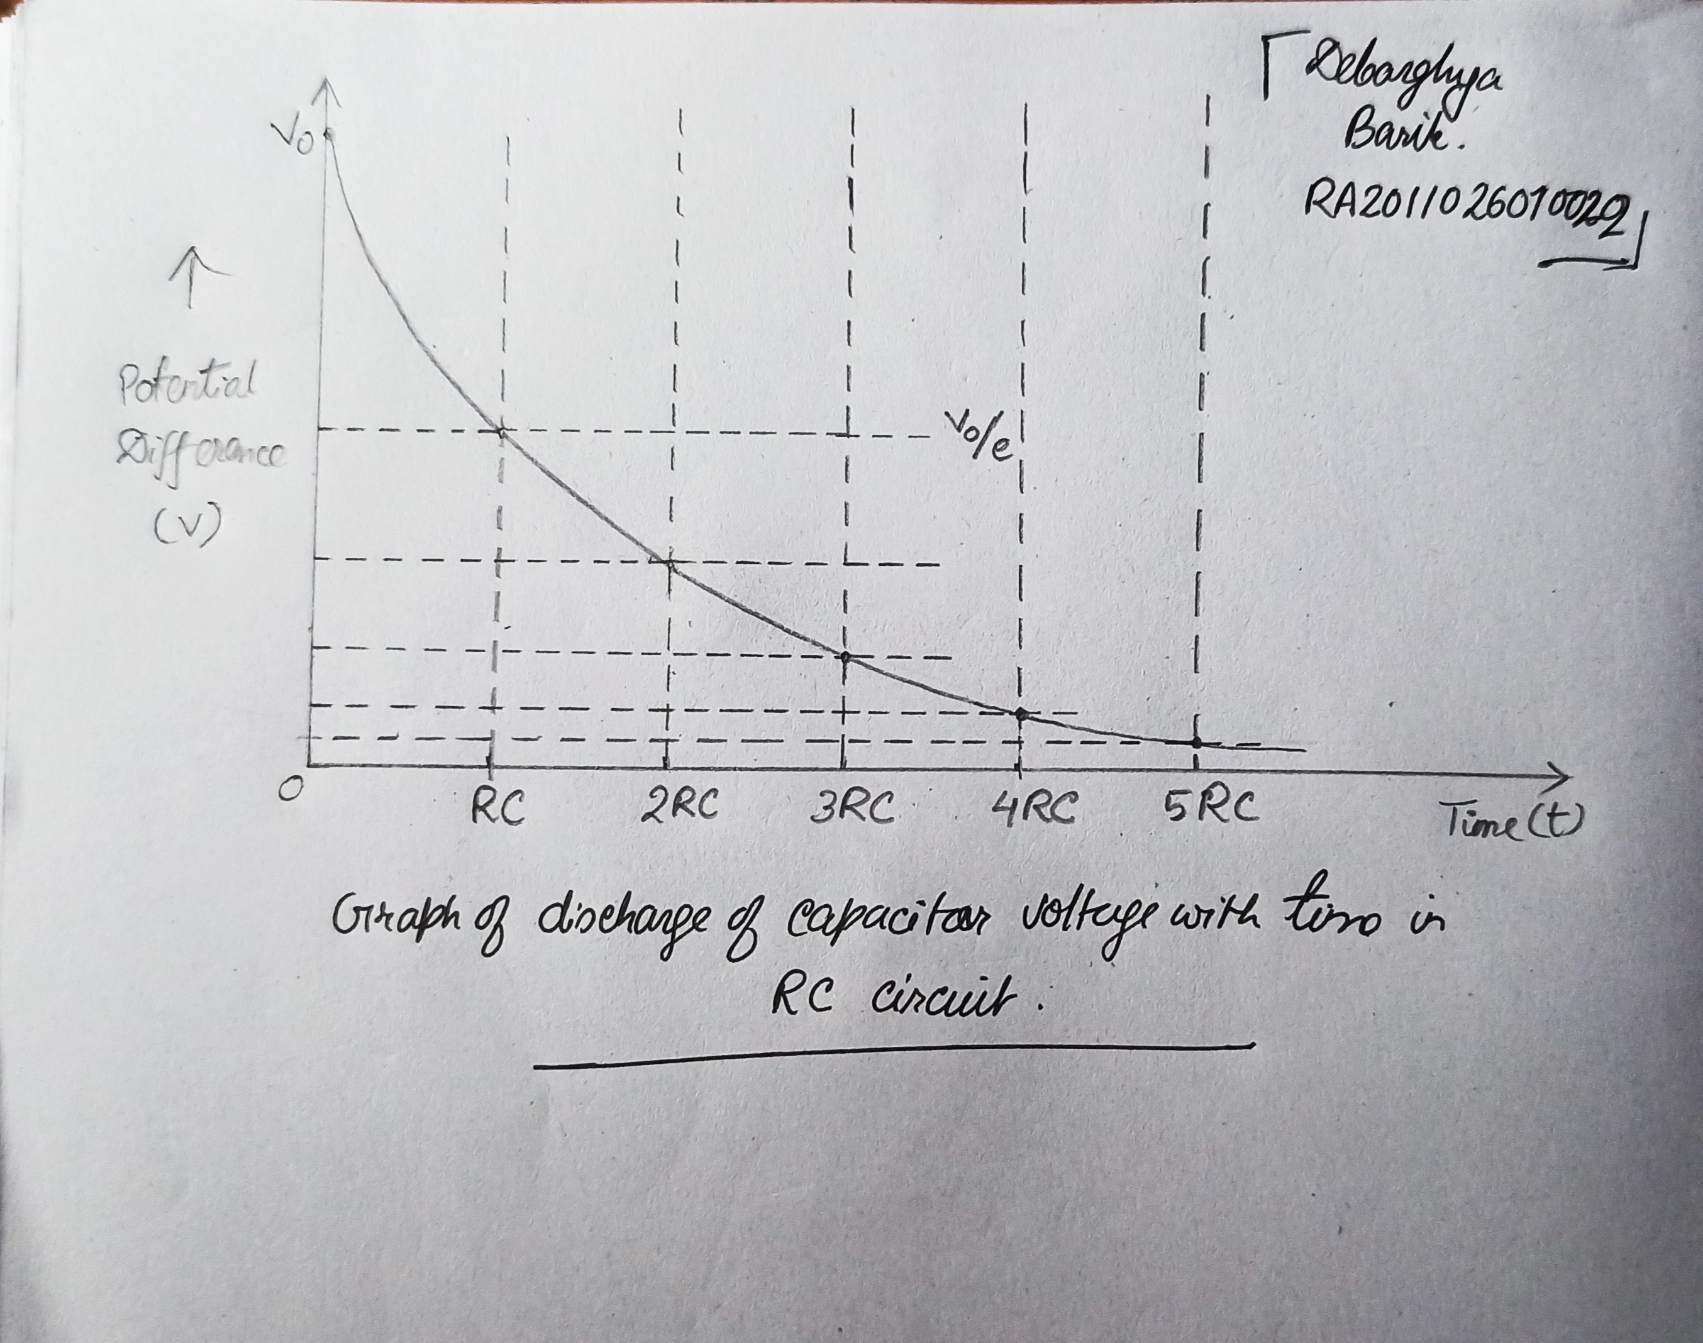 Debarghya
Barik.
RA2011026010022
V0
↑
Potential
Difference
(V)
V0/e
O
RC 2RC 3RC 4RC 5RC
Time (t)
Graph of discharge of capacitor voltage with time in
RC circuit.